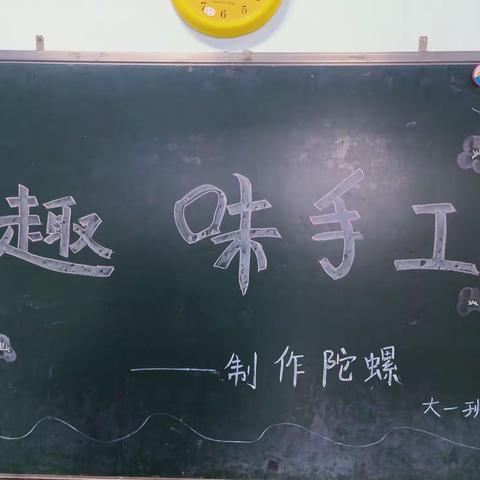 7 6 5
趣味手工
——制作陀螺
大一班